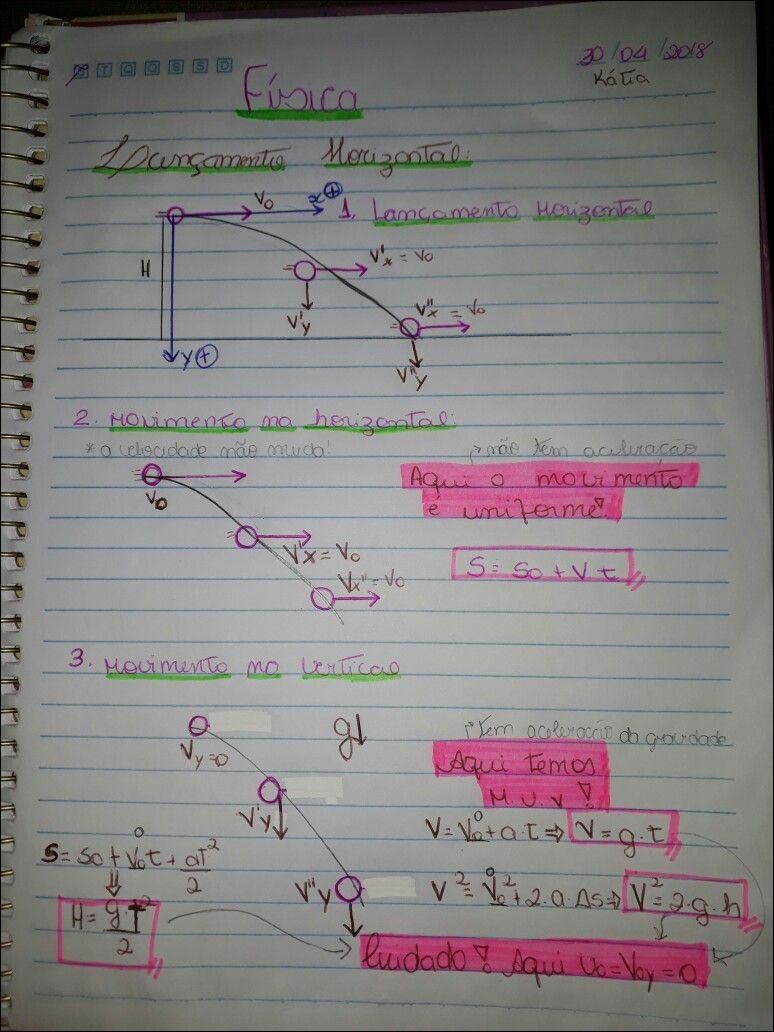 S T Q Q S S D
30/04/2018
Kátia
Física
1 Lançamento Horizontal:
V₀
x⊕
1. Lançamento Horizontal
H
V'x = V₀
V'y
V''x = V₀
y⊕
V''y
2. Movimento na horizontal:
* a velocidade não muda!
não tem aceleração
Aqui o movimento
é uniforme!
V₀
V'x = V₀
Vx'' = V₀
S = So + V.t
3. Movimento no vertical
Vy=0
g↓
tem aceleração da gravidade
Aqui temos
M.U.V!
V'y
V = V₀ + a.t ⇒ V = g.t
0
S = So + V₀t + at²/2
0
V''y
V² = V₀² + 2.a.ΔS ⇒ V² = 2.g.h
0
H = g.T²/2
Cuidado! Aqui V₀ = V₀y = 0